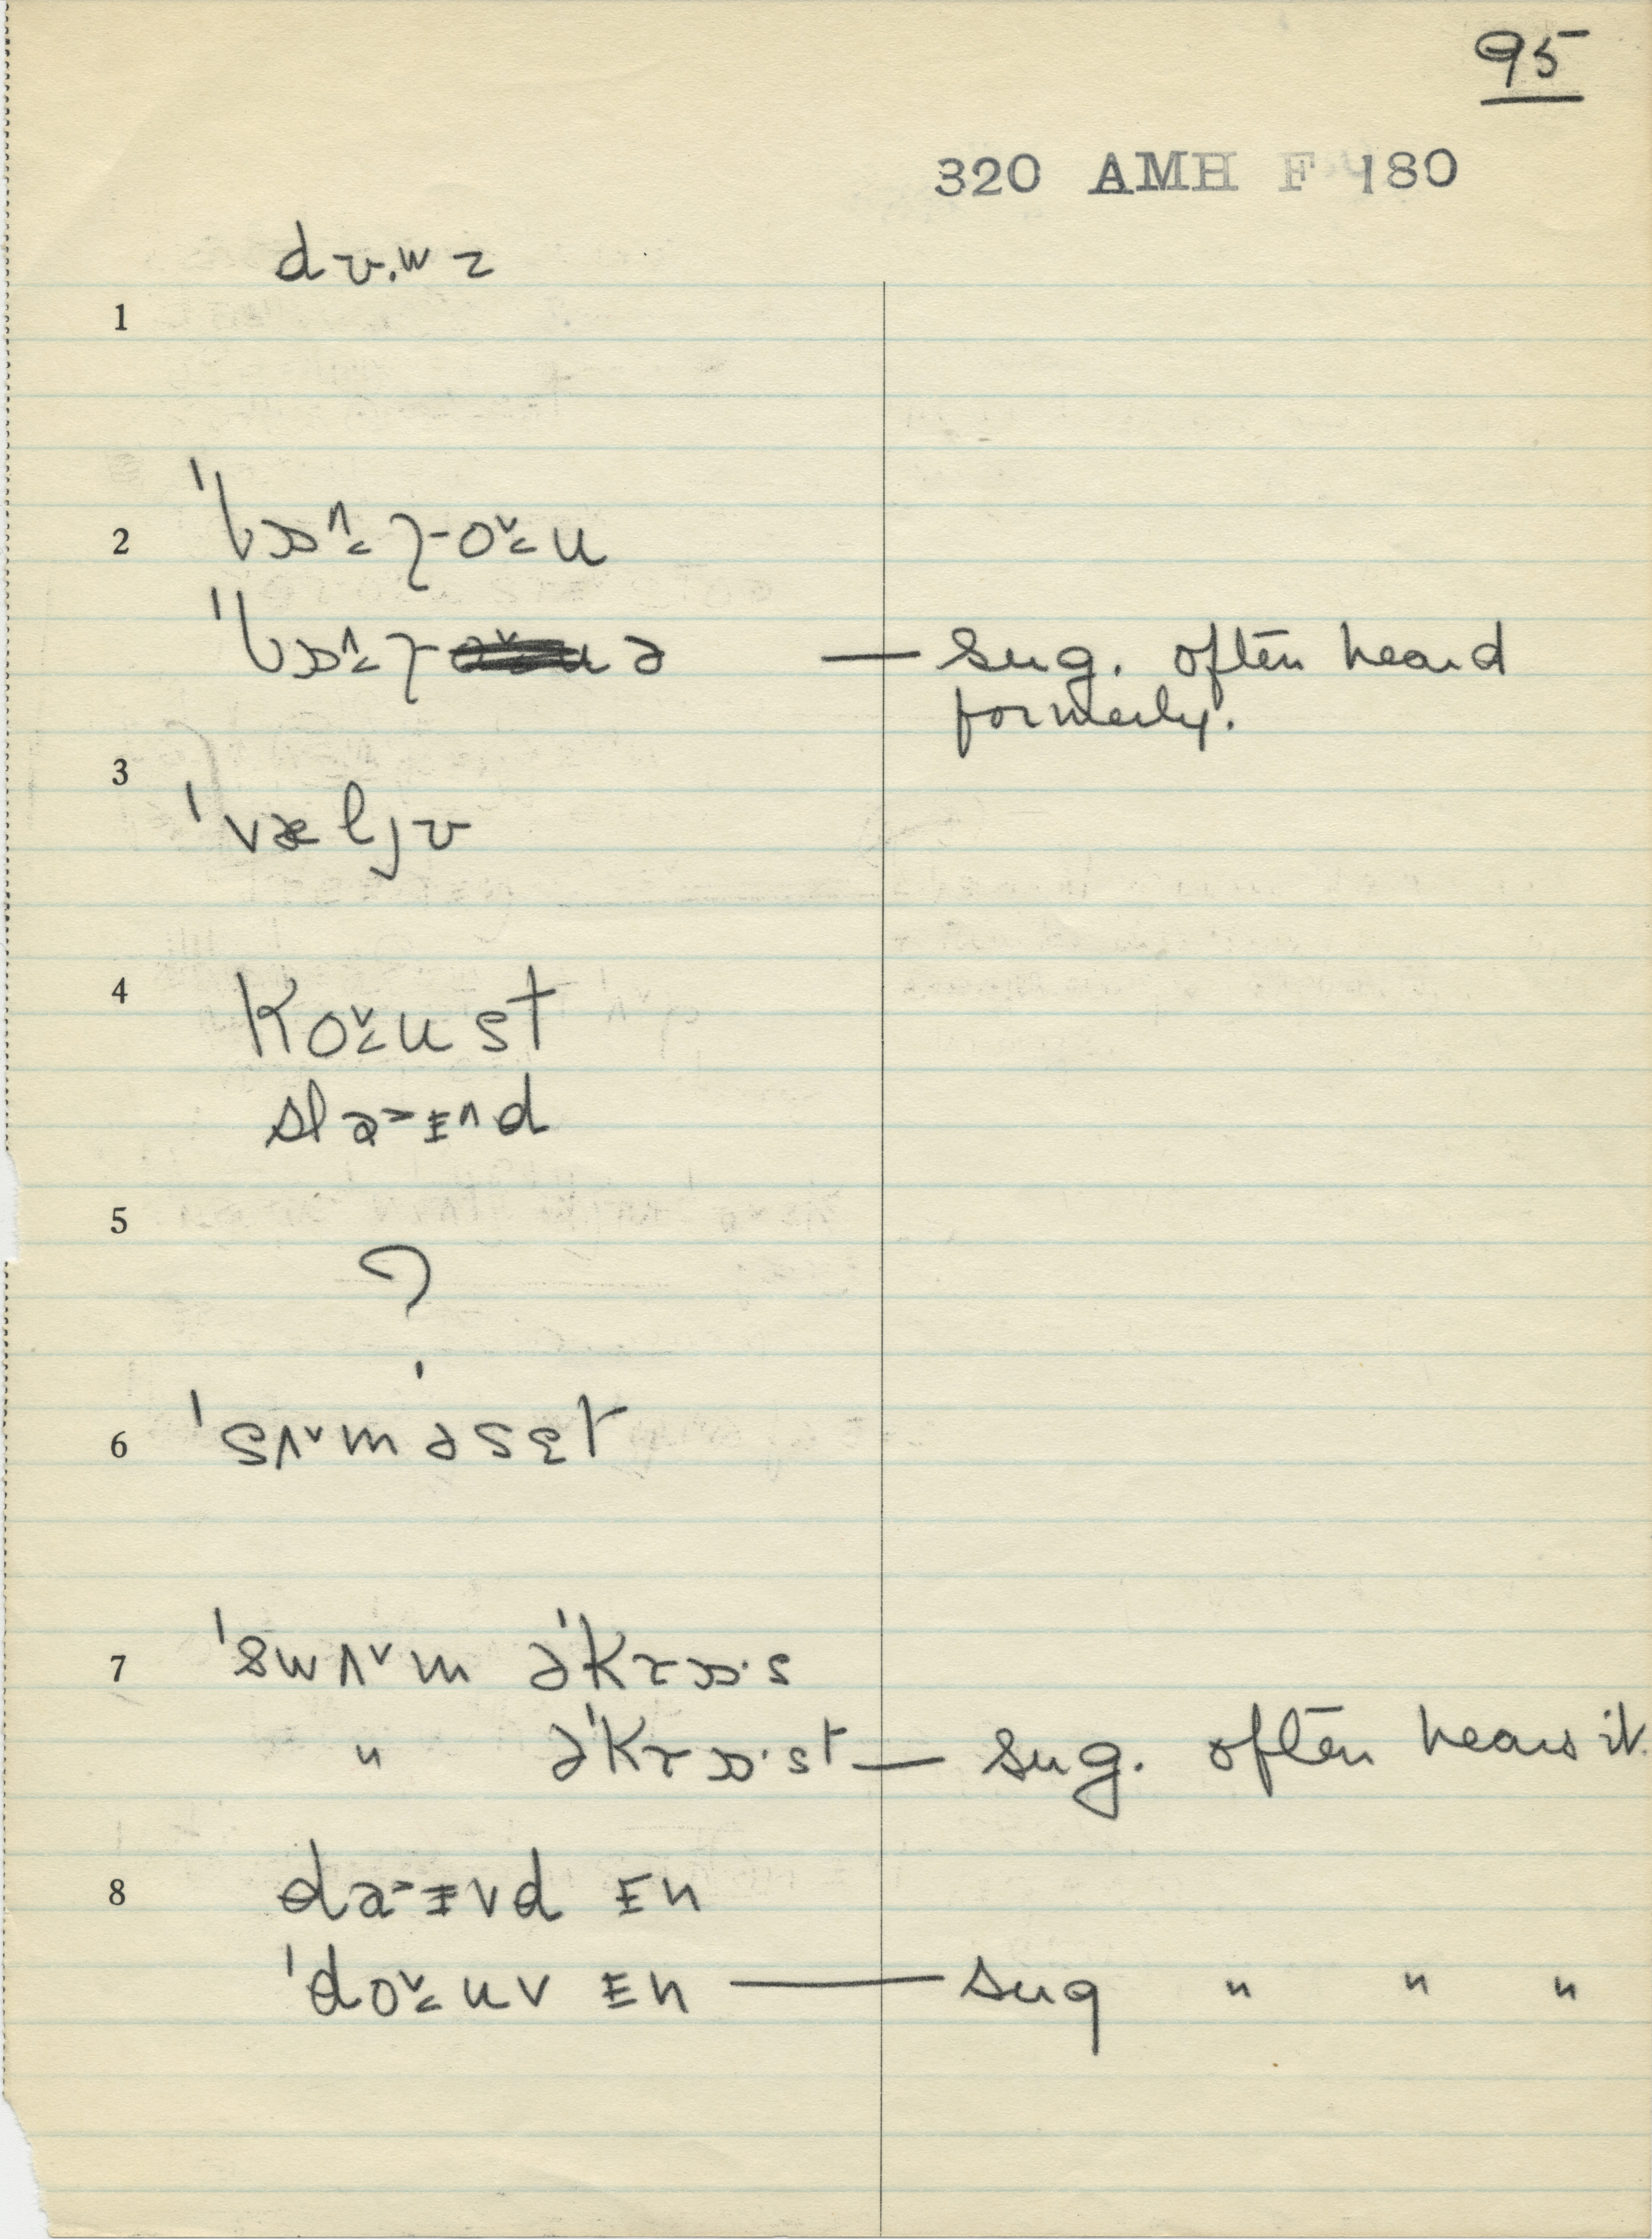 95
320 AMH F 180
dɒ·wz
1
2 ˈbɒ^˂ɼ-o˅˂u
ˈbɒ^˂ɼ- ə — sug. often heard
formerly.
3
ˈvæljɒ
4
Ko˅˂ust
slaᵻnd
5
?
6 ˈsʌ˅məsɛt
7 ˈswʌ˅m əˈkɹɒ·s
" əˈkɹɒ·st — sug. often hears it.
8 da vd ᵻn
ˈdo˅˂uv ᵻn — sug " " "